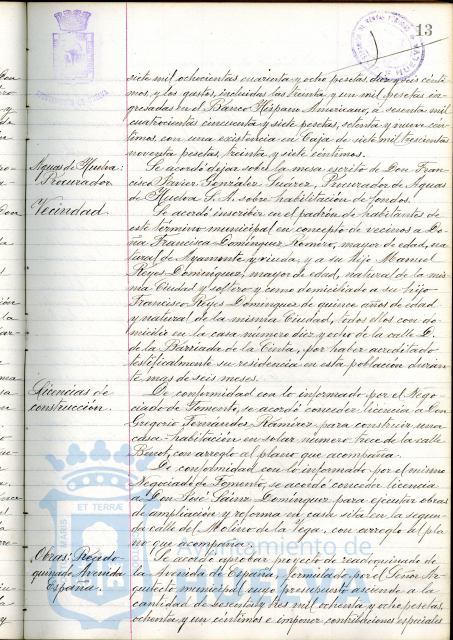 13
siete mil ochocientas cuarenta y ocho pesetas, diez y seis cénti-
mos, y los gastos, incluidas las treinta y un mil pesetas in-
gresadas en el Banco Hispano Americano, a sesenta mil
cuatrocientas cincuenta y siete pesetas, setenta y nueve cén-
timos, con una existencia en Caja de siete mil trescientas
noventa pesetas, treinta y siete céntimos.
Aguas de Huelva:
Procurador
Se acordó dejar sobre la mesa escrito de Don Fran-
cisco Javier González Suárez, Procurador de Aguas
de Huelva S. A. sobre habilitación de fondos.
Vecindad.
Se acordó inscribir en el padrón de habitantes de
este término municipal en concepto de vecinos a Do-
ña Francisca Domínguez Romero, mayor de edad, na-
tural de Ayamonte, y viuda, y a su hijo Manuel
Reyes Domínguez, mayor de edad, natural de la mis-
ma Ciudad y soltero y como domiciliado a su hijo
Francisco Reyes Domínguez de quince años de edad
y natural de la misma Ciudad, todos ellos con do-
micilio en la casa número diez y ocho de la calle D.
de la Barriada de la Cinta, por haber acreditado
testificalmente su residencia en esta población duran-
te mas de seis meses.
Licencias de
construcción.
De conformidad con lo informado por el Nego-
ciado de Fomento, se acordó conceder licencia a Don
Gregorio Fernández Ramírez para construir una
casa-habitación en solar número trece de la calle
Benot, con arreglo al plano que acompaña.
De conformidad con lo informado por el mismo
Negociado de Fomento, se acordó conceder licencia
a Don José Sainz Domínguez para ejecutar obras
de ampliación y reforma en casa sita en la segun-
da calle del Molino de la Vega, con arreglo al pla-
no que acompaña.
Obras: Readо-
quinado Avenida
España.
Se acordó aprobar proyecto de readoquinado de
la Avenida de España, formulado por el Señor Ar-
quitecto municipal cuyo presupuesto asciende a la
cantidad de sesenta y tres mil ochenta y ocho pesetas,
ochenta y un céntimos e imponer contribuciones especiales
ET TERRÆ
Ayuntamiento de